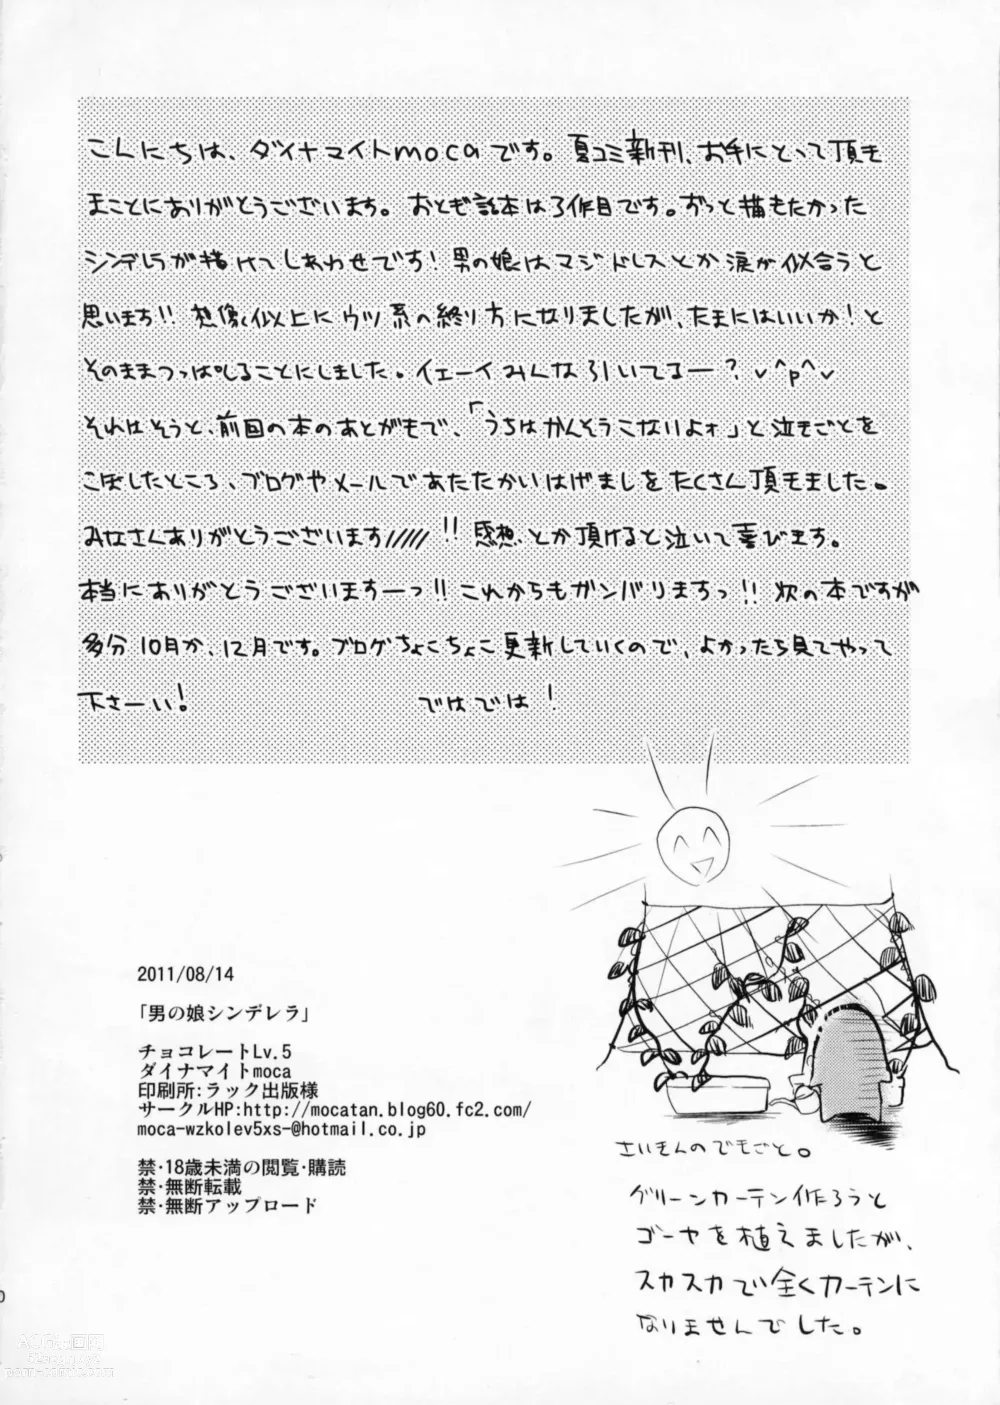 こんにちは、ダイナマイトmocaです。夏コミ新刊、お手にとって頂き
まことにありがとうございます。おとぎ話本は3作目です。ずっと描きたかった
シンデレラが描けてしあわせです！男の娘はマジドレスとか涙が似合うと
思います!! 想像以上にウツ系の終り方になりましたが、たまにはいいか！と
そのままつっぱしることにしました。イェーイみんな引いてるー？ ^p^
それはそうと、前回の本のあとがきで、「うちはかんそうこないよォ」と泣きごとを
こぼしたところ、ブログやメールであたたかいはげましをたくさん頂きました。
みなさんありがとうございます/////!! 感想とか頂けると泣いて喜びます。
本当にありがとうございますーっ!! これからもガンバりますっ!! 次の本ですが
多分10月か、12月です。ブログちょこちょこ更新していくので、よかったら見てやって
下さーい！ ではでは！
2011/08/14
「男の娘シンデレラ」
チョコレートLv.5
ダイナマイトmoca
印刷所:ラック出版様
サークルHP:http://mocatan.blog60.fc2.com/
moca-wzkolev5xs-@hotmail.co.jp
禁・18歳未満の閲覧・購読
禁・無断転載
禁・無断アップロード
さいきんのできごと。
グリーンカーテン作ろうと
ゴーヤを植えましたが、
スカスカで全くカーテンに
なりませんでした。